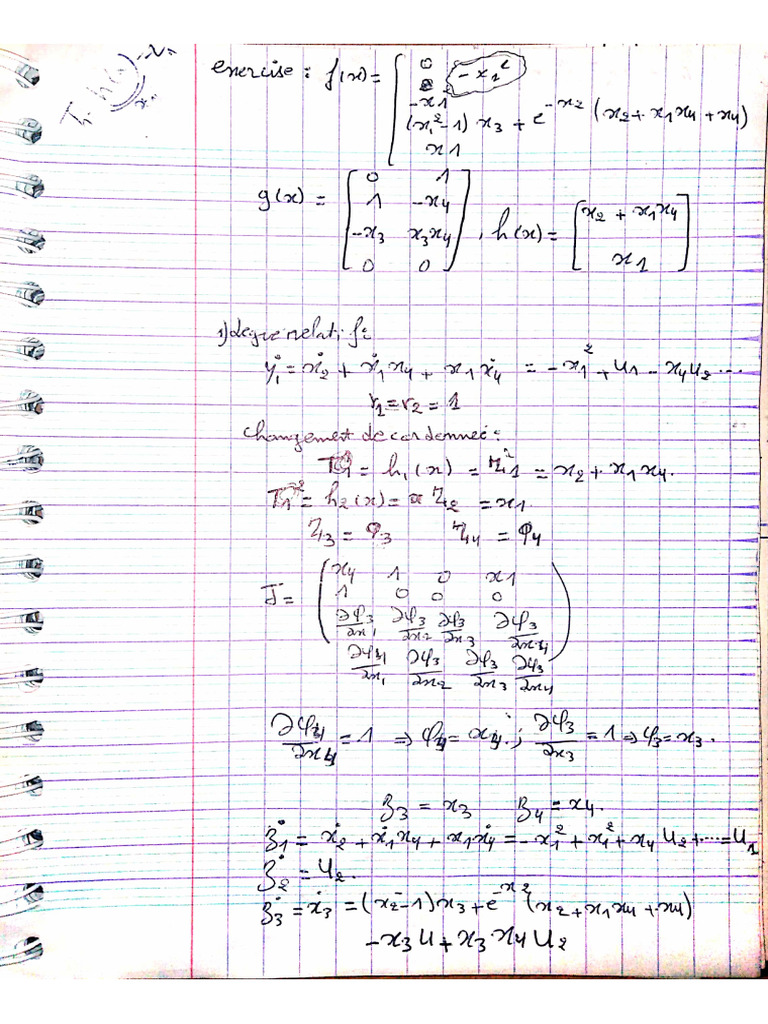 exercise : f(x) = [ 0
-x1²
-x1
(x1²-1) x3 + e^-x2 (x2 + x1x4 + x4)
x1
g(x) = [ 0 1
1 -x4
-x3 x3x4
0 0 ] , h(x) = [ x2 + x1x4
x1 ]
1) degre relatif :
ẏ1 = ẋ2 + ẋ1 x4 + x1 ẋ4 = -x1² + u1 - x4u2 ...
r1 = r2 = 1
changement de cordonneé :
= h1(x) = = x2 + x1x4.
= h2(x) = Z2 = x1
Z3 = φ3 Z4 = φ4
J = ( x4 1 0 x1
1 0 0 0
∂φ3/∂x1 ∂φ3/∂x2 ∂φ3/∂x3 ∂φ3/∂x4 )
∂φ4/∂x1 ∂φ3/∂x2 ∂φ3/∂x3 ∂φ3/∂x4
∂φ4/∂x4 = 1 ⇒ φ4 = x4 ; ∂φ3/∂x3 = 1 ⇒ φ3 = x3.
z3 = x3 z4 = x4.
ż1 = ẋ2 + ẋ1x4 + x1ẋ4 = -x1² + x1² + x4 u2 + ... = u1
ż2 = u2.
ż3 = ẋ3 = (x2-1)x3 + e^-x2 (x2 + x1x4 + x4)
-x3u + x3x4u2